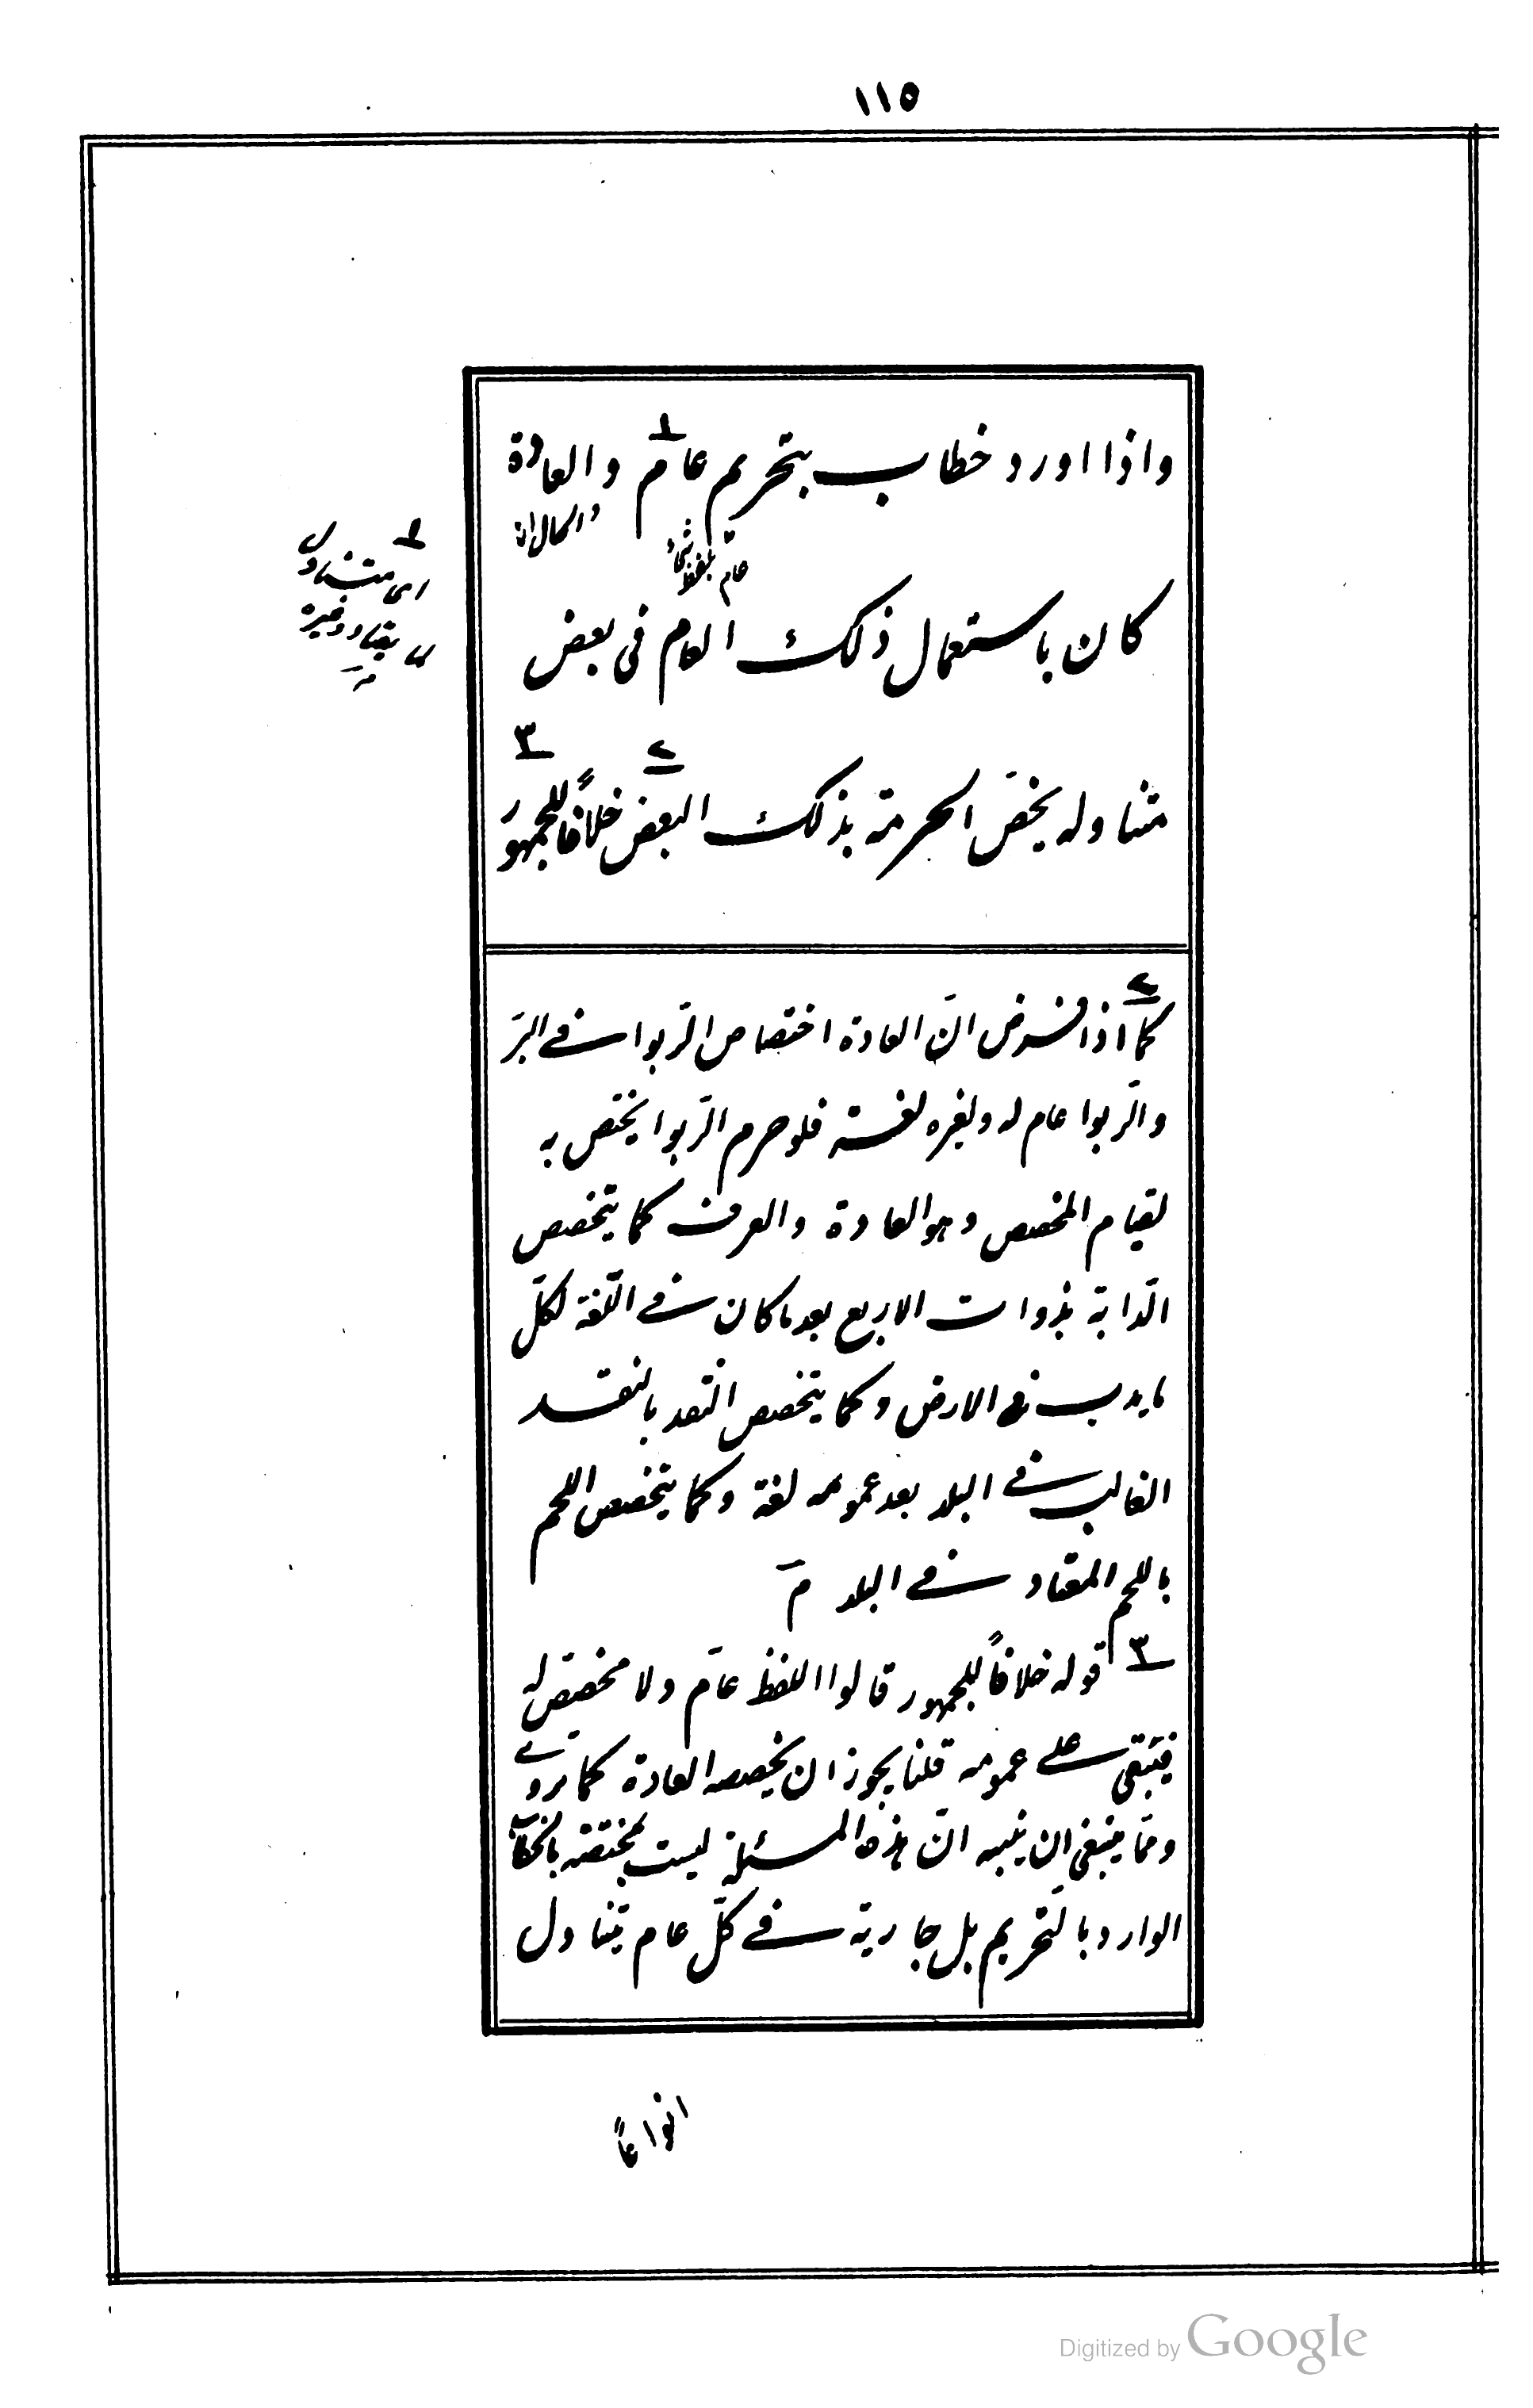 ١١٥
واذا اورد خطاب بتحريم عامّ ١ والعادة
والحال ان
عام بلفظ
كان باستعمال ذلك العام فى بعض
١
اى متناول
لما يعتاد وغيره
مـ
متناوله يخصّ الحرمة بذلك البعض ٢ خلافاً للجمهور ٣
٢ كما اذا فرض انّ العادة اختصاص الرّبوا فے البرّ
والرّبوا عام له ولغيره لغة فلو حرم الرّبوا يختص به
لقيام المخصص وهو العادة والعرف كما يتخصص
الدّابة بذوات الاربع بعد ما كان فے اللّغة لكلّ
ما يدب فے الارض وكما يتخصص النّقد بالنقد
الغالب فے البلد بعد عمومه لغة وكما يتخصص اللحم
باللحم المعتاد فے البلد مـ
٣ قوله خلافاً للجمهور قالوا اللفظ عامّ ولا مخصّص له
فيبقى علے عمومه قلنا يجوز ان يخصصه العادة كما
وممّا ينبغى ان ينبه انّ هذه المسئلة ليست بمختصّة بالخطاب
الوارد بالتّحريم بل جارية فے كلّ عام يتناول
انواعاً
Digitized by Google